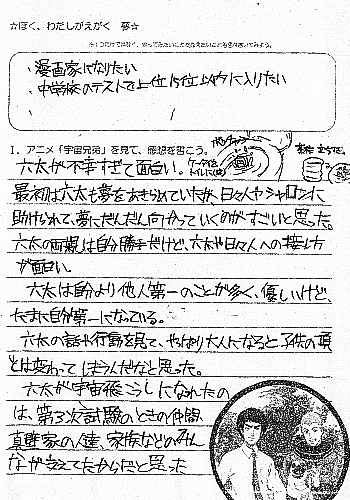 ☆ぼく、わたしがえがく 夢☆
・漫画家になりたい
・中学校のテストで上位15位以内に入りたい
1. アニメ「宇宙兄弟」を見て、感想を書こう。
六太が不幸すぎて面白い。
最初は六太も夢をあきらめていたが、日々人やシャロンに
助けられて、夢にだんだん向かっていくのがすごいと思った。
六太の両親は自分勝手だけど、六太や日々人への接し方
が面白い。
六太は自分より他人第一のことが多く、優しいけど、
たまに自分第一になっている。
六太の話や行動を見て、やっぱり大人になると子供の頃
とは変わってしまうんだなと思った。
六太が宇宙飛こうしになれたの
は、第3次試験のときの仲間、
真壁家の人達、家族などのみん
なが支えてたからだと思った